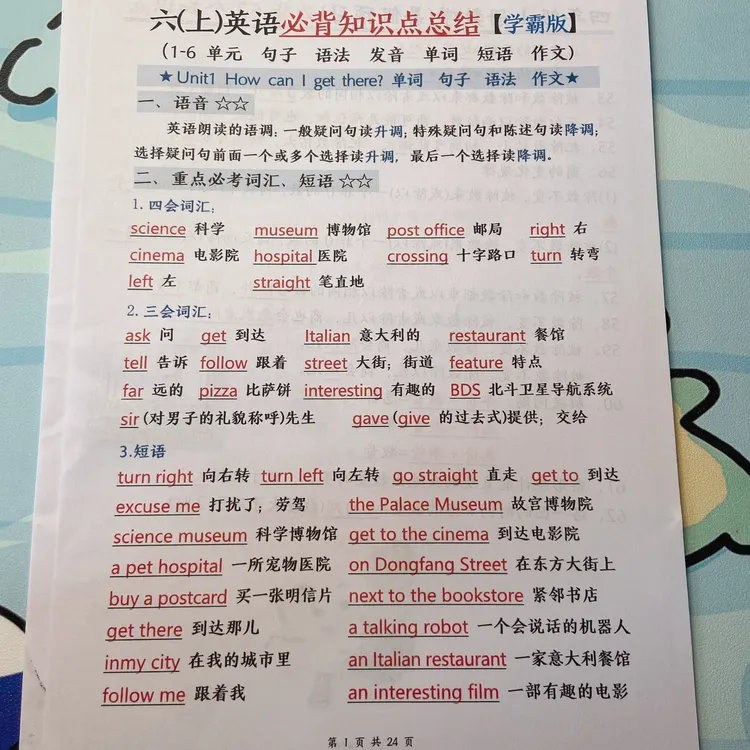 六(上)英语必背知识点总结【学霸版】
(1-6 单元 句子 语法 发音 单词 短语 作文)
★Unit1 How can I get there? 单词 句子 语法 作文★
一、语音☆☆
英语朗读的语调:一般疑问句读升调;特殊疑问句和陈述句读降调;
选择疑问句前面一个或多个选择读升调,最后一个选择读降调。
二、重点必考词汇、短语☆☆
1.四会词汇:
science 科学 museum 博物馆 post office 邮局 right 右
cinema 电影院 hospital 医院 crossing 十字路口 turn 转弯
left 左 straight 笔直地
2.三会词汇:
ask 问 get 到达 Italian 意大利的 restaurant 餐馆
tell 告诉 follow 跟着 street 大街;街道 feature 特点
far 远的 pizza 比萨饼 interesting 有趣的 BDS 北斗卫星导航系统
sir(对男子的礼貌称呼)先生 gave(give 的过去式)提供;交给
3.短语
turn right 向右转 turn left 向左转 go straight 直走 get to 到达
excuse me 打扰了;劳驾 the Palace Museum 故宫博物院
science museum 科学博物馆 get to the cinema 到达电影院
a pet hospital 一所宠物医院 on Dongfang Street 在东方大街上
buy a postcard 买一张明信片 next to the bookstore 紧邻书店
get there 到达那儿 a talking robot 一个会说话的机器人
inmy city 在我的城市里 an Italian restaurant 一家意大利餐馆
follow me 跟着我 an interesting film 一部有趣的电影
第 1 页 共 24 页